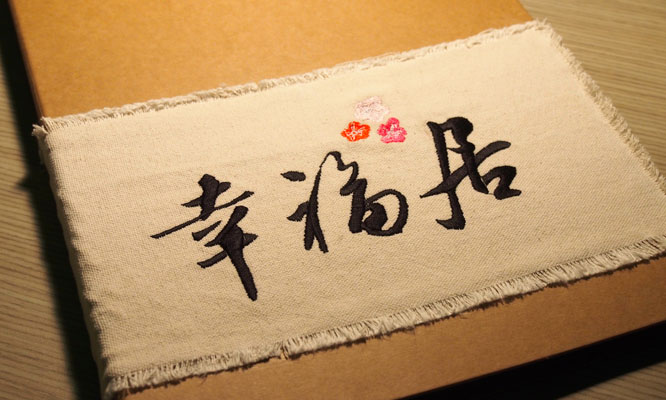 幸福居